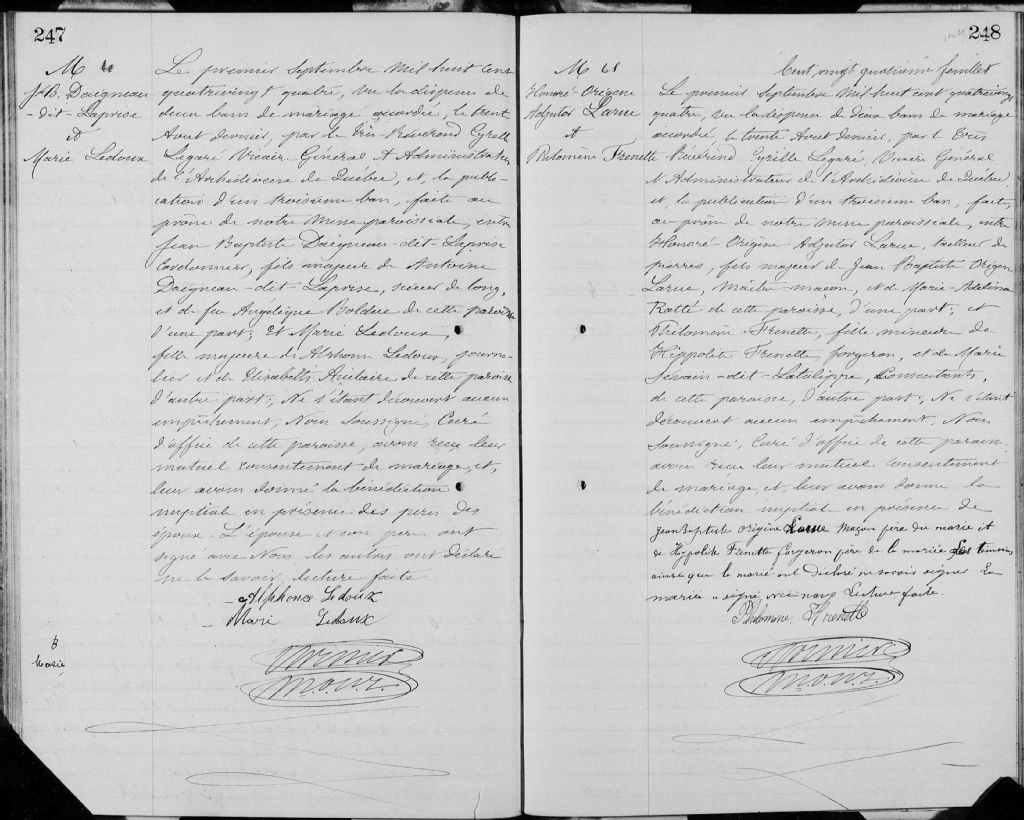 247
M
J-B. Daigneau
-dit-Laprise
et
Marie Ledoux
Le premier Septembre Mil huit cent
quatrevingt quatre, Vu la dispense de
deux bans de mariage accordée, le trent
Aout dernier, par le très Révérend Cyrille
Legaré Vicair Général et Administrateur
de l'Archidiocèse de Québec, et, la publi-
cation d'un troisième ban, faite au
prône de notre Messe paroissiale, entre
Jean Baptiste Daigneau-dit-Laprise
Cordonnier, fils majeur de Antoine
Daigneau-dit-Laprise, scieur de long,
et de feu Angélique Boldue de cette paroisse
d'une part; Et Marie Ledoux,
fille majeure de Alphonse Ledoux, journa-
lier et de Elisabeth Auclaire de cette paroisse
d'autre part; Ne s'étant découvert aucun
empêchement, Nous Soussigné, Curé
d'office de cette paroisse, avons reçu leur
mutuel consentement de mariage, et,
leur avons donné la bénédiction
nuptiale en présence des pères des
époux. L'épouse et son père ont
signé avec Nous les autres ont déclaré
ne le savoir, lecture faite
Alphonse Ledoux
Mari Ledoux
Marié
248
Cent vingt quatrième feuillet
M 68
Honoré-Origène
Adjutor Larue
et
Philomène Frenette
Le premier Septembre Mil huit cent quatrevingt
quatre, Vu la dispense de deux bans de mariage
accordée, le trente Aout dernier, par l très
Révérend Cyrille Legaré, Vicaire Général
et Administrateur de l'Archidiocèse de Québec,
et, la publication d'un troisième ban, faite,
au prône de notre Messe paroissiale, entre
Honoré-Origène-Adjutor Larue, tailleur de
pierres, fils majeur de Jean Baptiste Origène
Larue, Maître-maçon, et de Marie-Adelina
Ratté de cette paroisse, d'une part; et
Philomène Frenette, fille mineure de
Hippolite Frenette forgeron, et de Marie
Sevain-dit-Latulippe, Consentants,
de cette paroisse, d'autre part; Ne s'étant
découvert aucun empêchement, Nous
Soussigné, Curé d'office de cette paroisse
avons reçu leur mutuel Consentement
de mariage, et, leur avons donné la
bénédiction nuptiale en présence de
Jean Baptiste Origène Larue Maçon père du marié et
de Hypolite Frenette forgeron père de la mariée Les temoins
ainsi que le marié ont Déclaré ne savoir signer La
mariée a signé avec nous Lecture faite.
Philomene Frenette